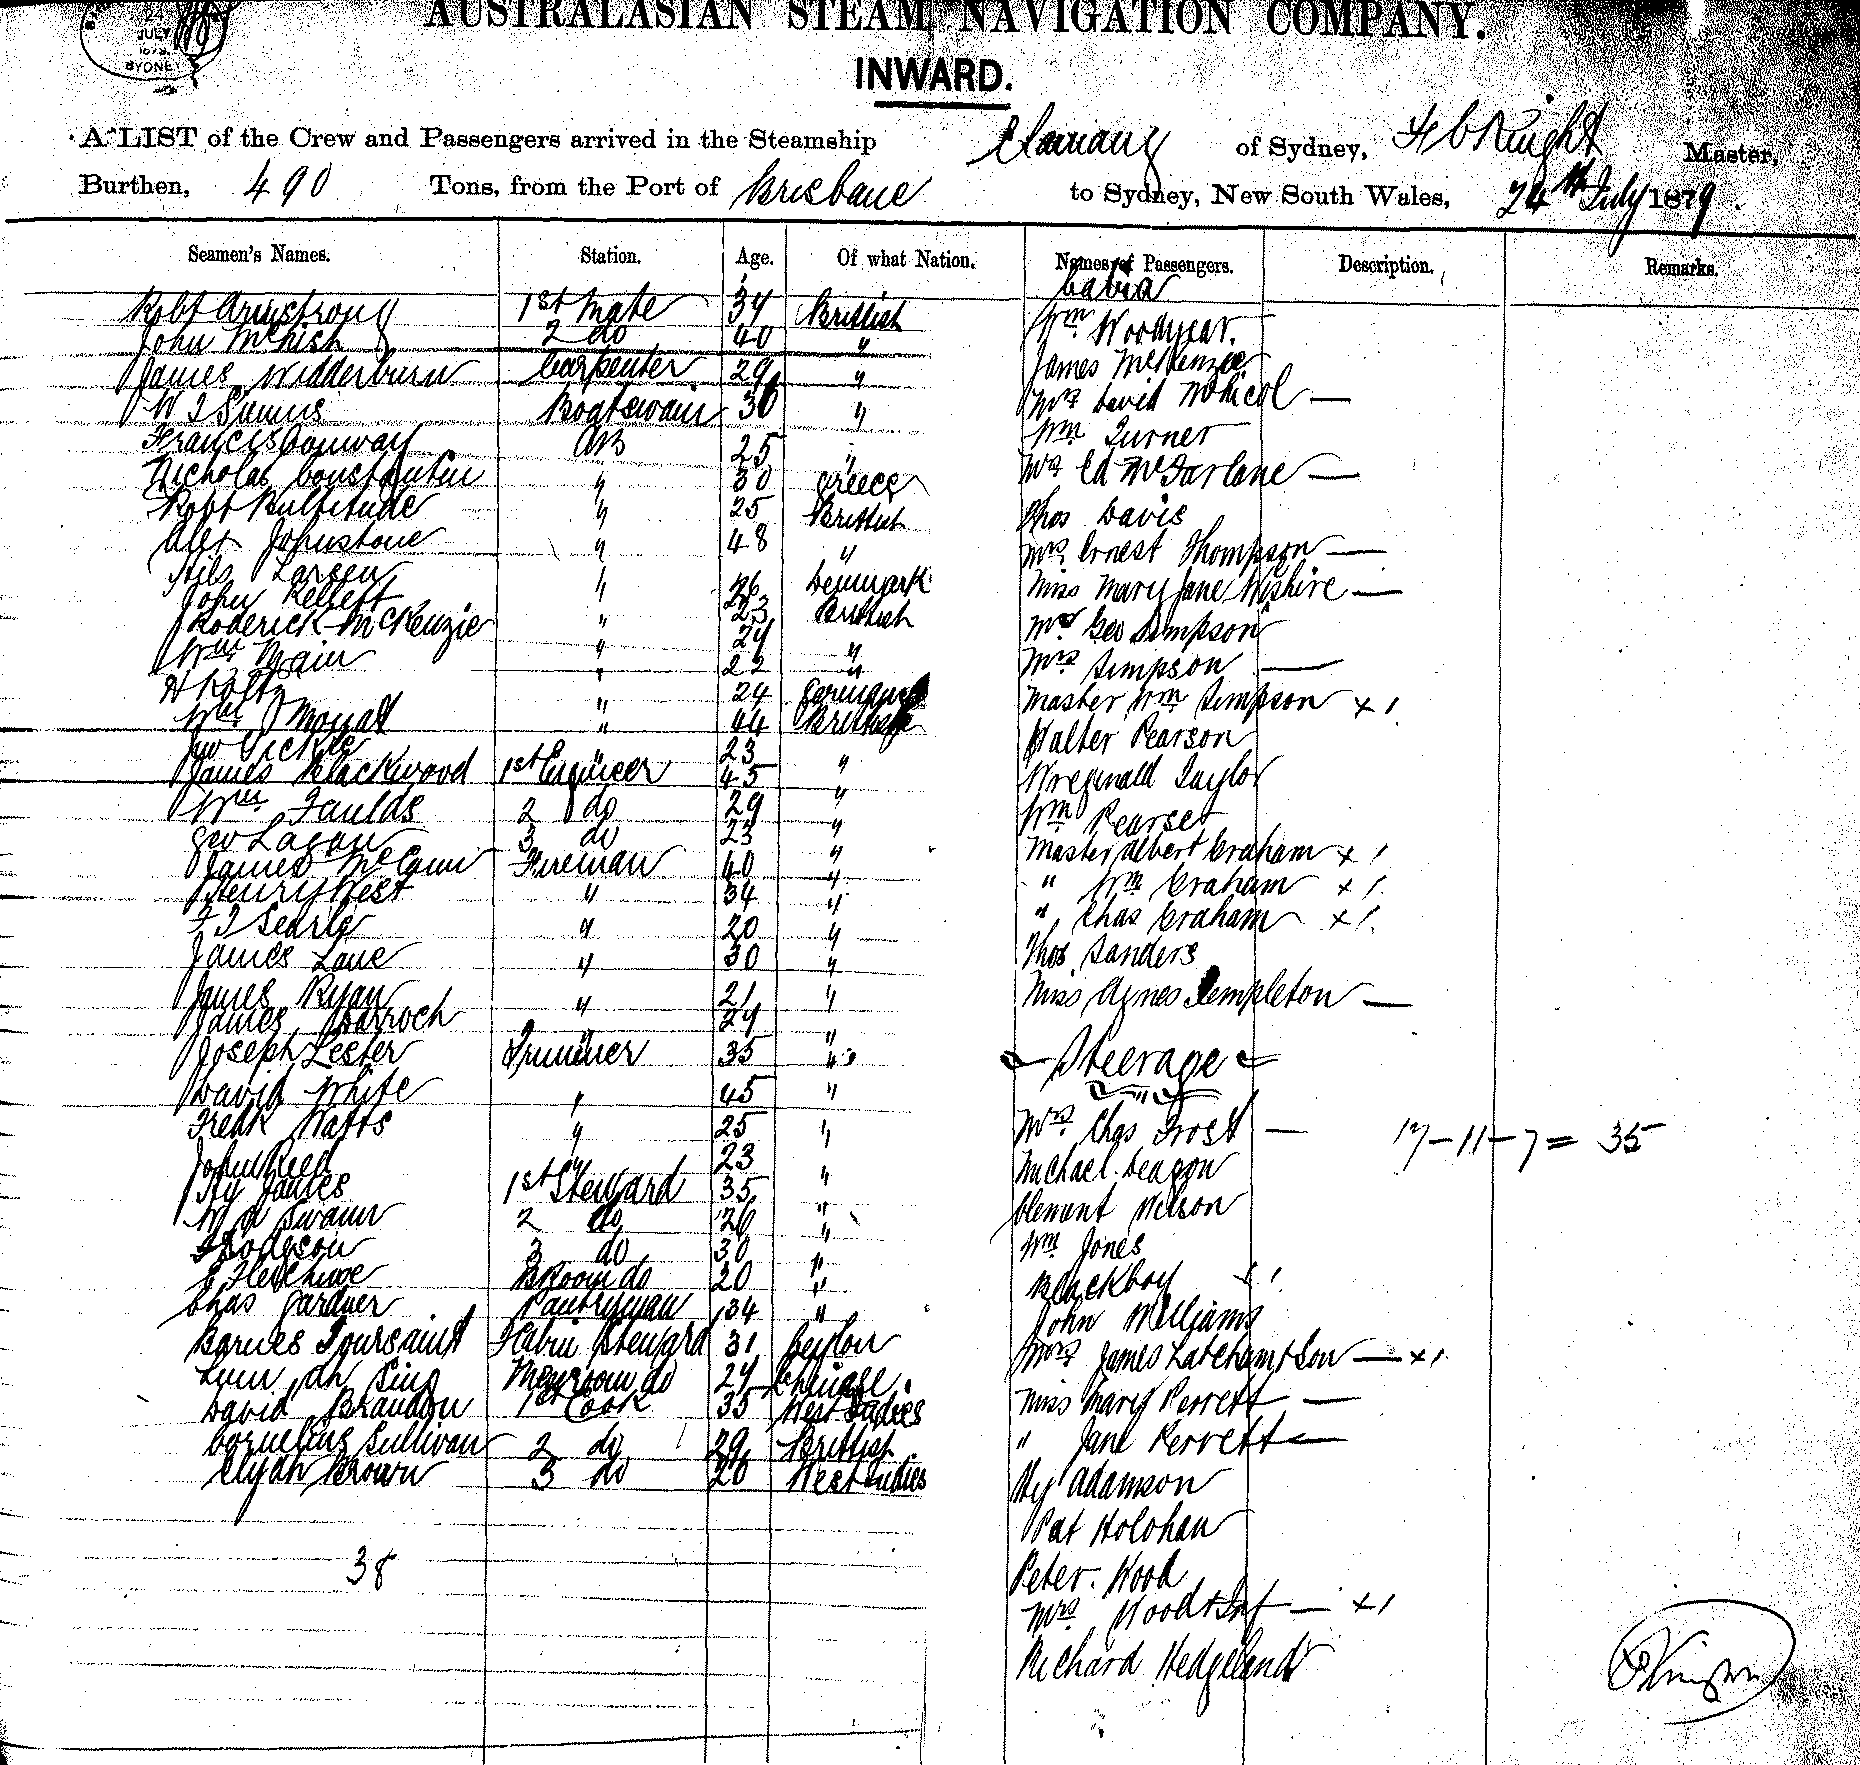 24
JULY
1879
SYDNEY
AUSTRALASIAN STEAM NAVIGATION COMPANY.
INWARD.
A LIST of the Crew and Passengers arrived in the Steamship of Sydney, Master,
Burthen, 490 Tons, from the Port of Brisbane to Sydney, New South Wales, 24th July 1879.
Seamen's Names. Station. Age. Of what Nation. Names of Passengers. Description. Remarks.
Cabin
Robt Armstrong 1st Mate 34 Brittish
John McNish 2 do 40 "
James Widderburn Carpenter 29 "
Boatswain 30 "
Francis Conway AB 25 "
Nicholas Constantin " 30 Greece
Robt Bultitude " 25 Brittish
Alex Johnstone " 48 "
Nils Larsen " 26 Denmark
John Kellett " 23 Brittish
Roderick McKenzie " 24 "
Wm Main " 22 "
H Koltz " 24 Germany
Wm Mouat " 44 Brittish
Jno Pickle " 23 "
James Blackwood 1st Engineer 45 "
Wm Faulds 2 do 29 "
Geo Lagan 3 do 23 "
James McCann Fireman 40 "
Henry West " 34 "
F J Searle " 20 "
James Lane " 30 "
James Ryan " 21 "
James Darroch " 24 "
Joseph Lester Trimmer 35 "
David White " 45 "
Fredk Watts " 25 "
John Reed " 23 "
Hy James 1st Steward 35 "
W A Swann 2 do 26 "
Hodgson 3 do 30 "
Bkroom do 20 "
Chas Gardner Pantryman 34 "
Barnes Toursaint Fcabin Steward 31 Ceylon
Lum Ah Sing Messroom do 24 Chinese
David Brandon 1st Cook 35 West Indies
Cornelius Sullivan 2 do 29 Brittish
Elijah Brown 3 do 20 West Indies
38
Wm Woodyear.
James McKenzie
Mrs David McNicol —
Wm Turner
Mrs Ed McFarlane —
Thos Davis
Mrs Ernest Thompson —
Miss Mary Jane Wishire —
Mr Geo Simpson
Mrs Simpson —
Master Wm Simpson x 1
Walter Pearson
Wreginald Taylor
Wm Pearset
Master Albert Graham x 1
" Wm Graham x 1
" Chas Graham x 1
Thos Sanders
Miss Agnes Templeton —
Steerage
Mrs Chas Frost — 17 - 11 - 7 = 35
Michael Deagon
Clement Wilson
Wm Jones
Blackboy x 1
John Williams
Mrs James Latcham + Son — x 1
Miss Mary Perrett —
" Jane Perrett —
Hy Adamson
Pat Holohan
Peter Wood
Mrs Wood + Inf — x 1
Richard Hedgeland